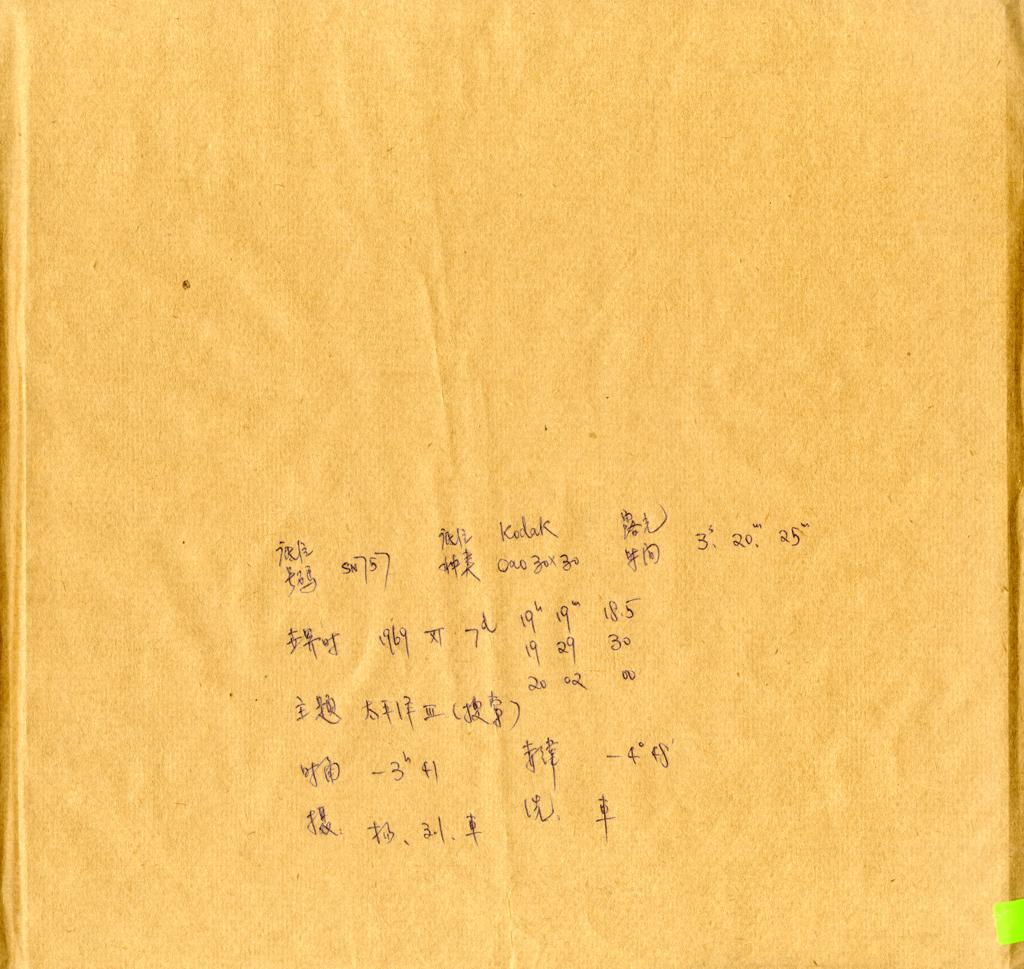 底片号码 SN757 底片种类 Kodak Oa0 30×30 露光时间 3ˢ. 20.ᵐ 25ᵐ
世界时 1969 XI 7ᵈ 19ʰ 19ᵐ 18.5
19 29 30
20 02 00
主题 太平洋 III (搜索)
时角 -3ʰ 41 赤纬 -4° 48′
摄. 杨、刘、車 洗. 車